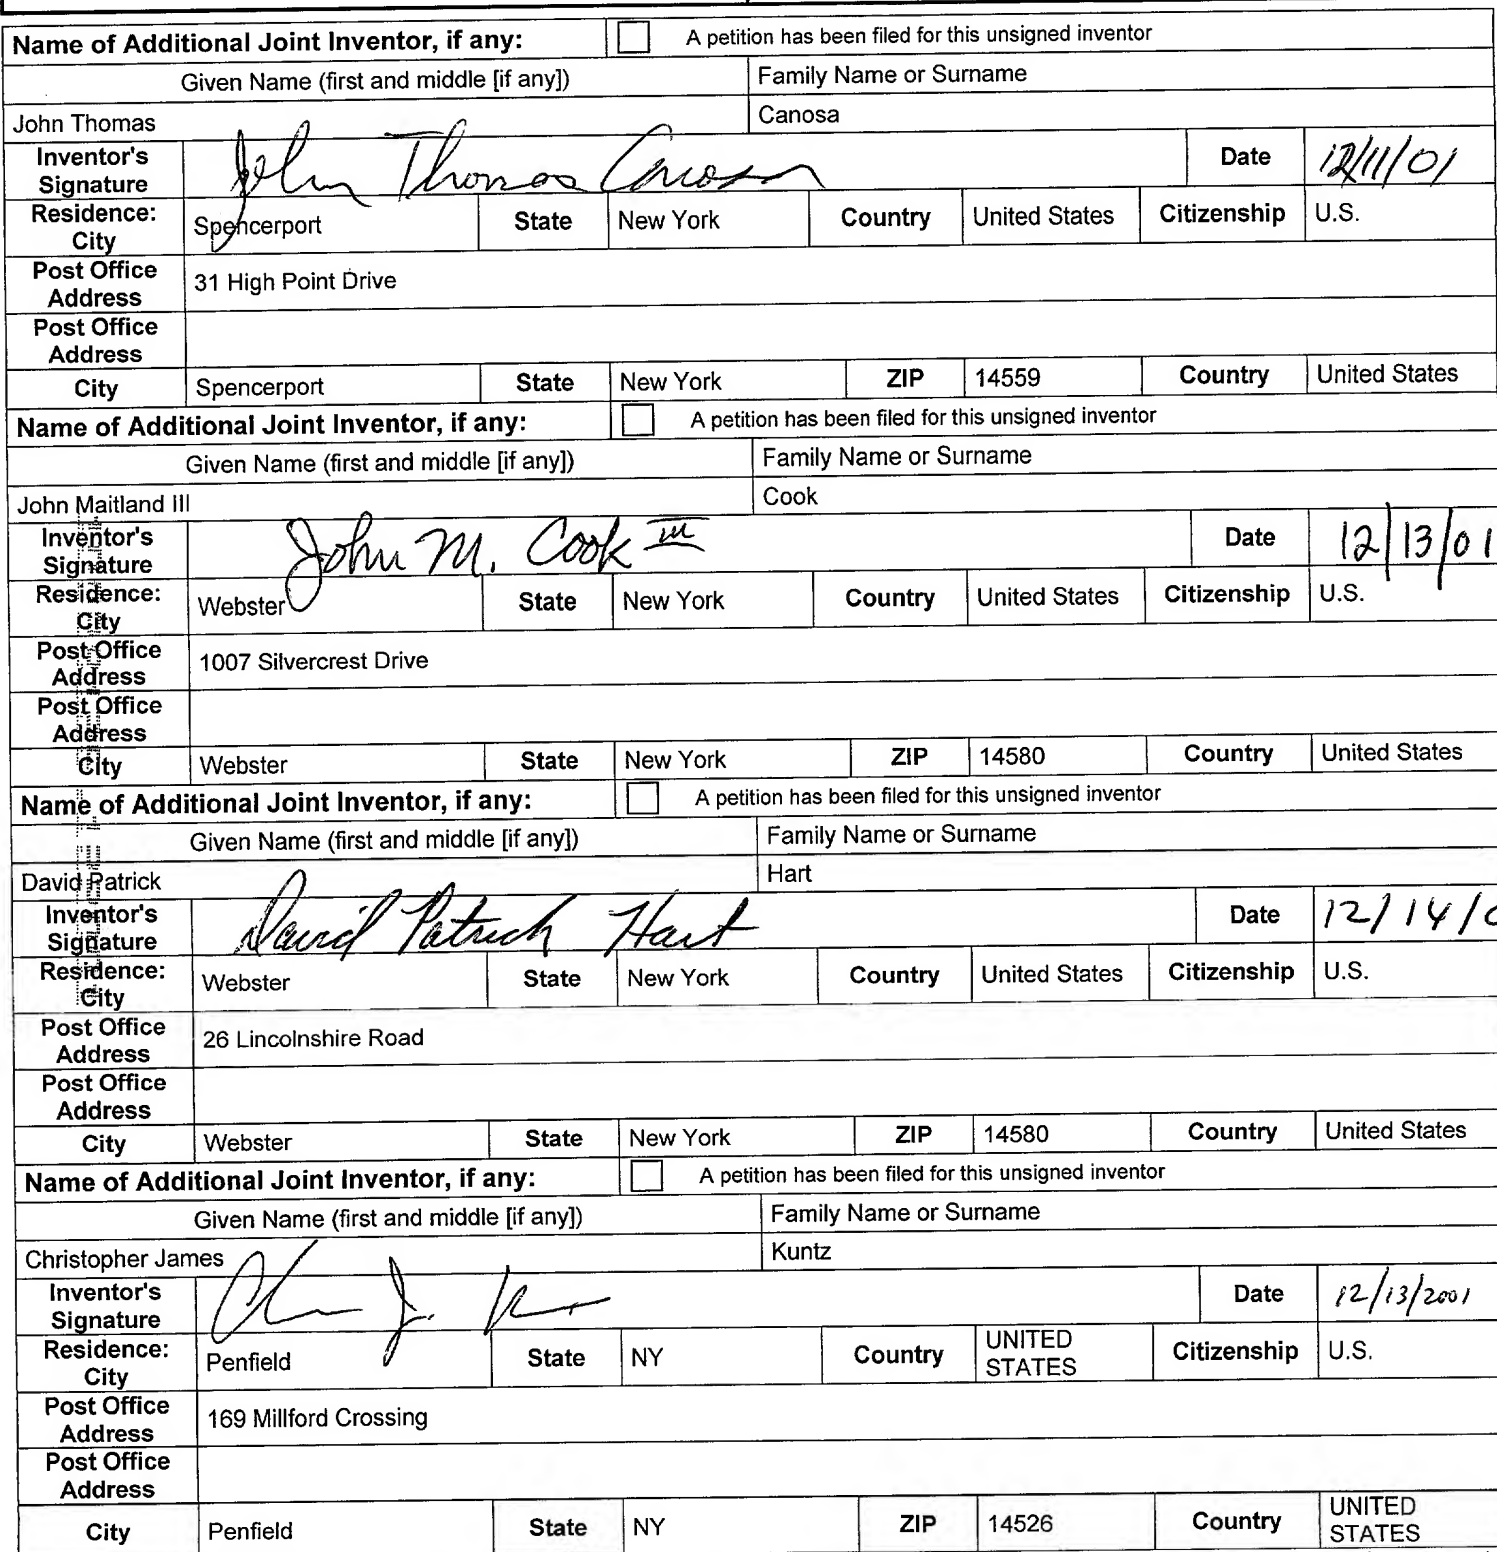 Name of Additional Joint Inventor, if any: A petition has been filed for this unsigned inventor
Given Name (first and middle [if any]) Family Name or Surname
John Thomas Canosa
Inventor's Signature John Thomas Canosa Date 12/11/01
Residence: City Spencerport State New York Country United States Citizenship U.S.
Post Office Address 31 High Point Drive
Post Office Address
City Spencerport State New York ZIP 14559 Country United States
Name of Additional Joint Inventor, if any: A petition has been filed for this unsigned inventor
Given Name (first and middle [if any]) Family Name or Surname
John Maitland III Cook
Inventor's Signature John M. Cook III Date 12/13/01
Residence: City Webster State New York Country United States Citizenship U.S.
Post Office Address 1007 Silvercrest Drive
Post Office Address
City Webster State New York ZIP 14580 Country United States
Name of Additional Joint Inventor, if any: A petition has been filed for this unsigned inventor
Given Name (first and middle [if any]) Family Name or Surname
David Patrick Hart
Inventor's Signature David Patrick Hart Date 12/14/0
Residence: City Webster State New York Country United States Citizenship U.S.
Post Office Address 26 Lincolnshire Road
Post Office Address
City Webster State New York ZIP 14580 Country United States
Name of Additional Joint Inventor, if any: A petition has been filed for this unsigned inventor
Given Name (first and middle [if any]) Family Name or Surname
Christopher James Kuntz
Inventor's Signature Date 12/13/2001
Residence: City Penfield State NY Country UNITED STATES Citizenship U.S.
Post Office Address 169 Millford Crossing
Post Office Address
City Penfield State NY ZIP 14526 Country UNITED STATES